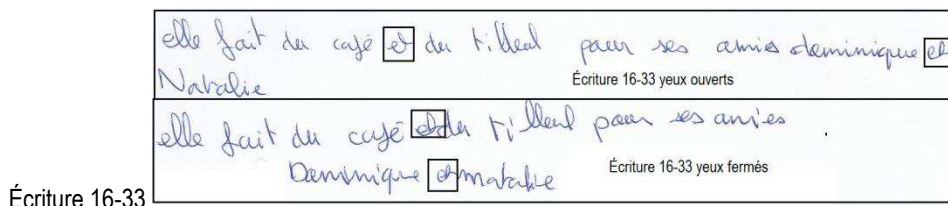 elle fait du café et du tilleul pour ses amies dominique et
Natalie
Écriture 16-33 yeux ouverts
elle fait du café et du tilleul pour ses amies
Dominique et natalie
Écriture 16-33 yeux fermés
Écriture 16-33